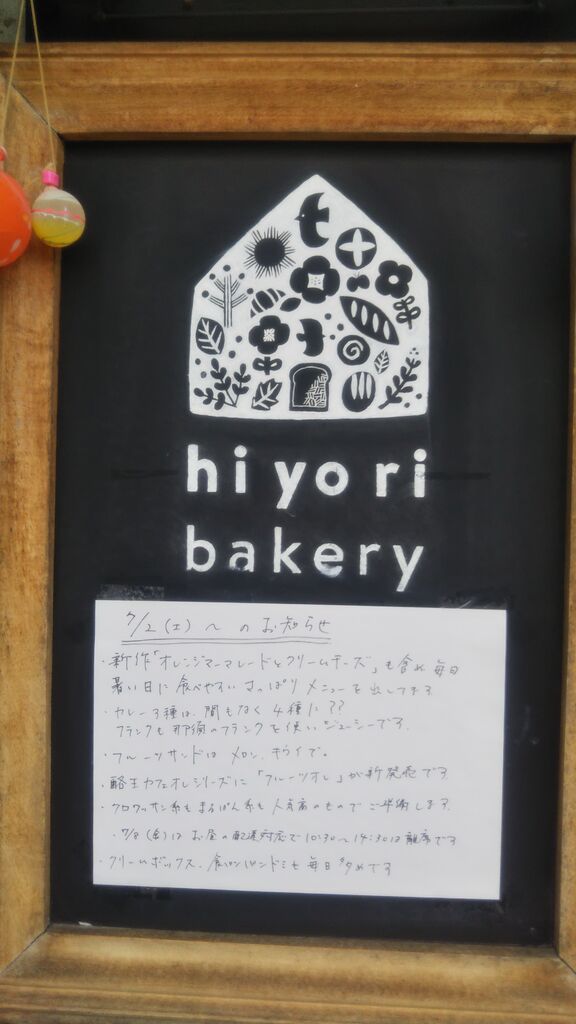 hiyori
bakery
7/2(土)〜のお知らせ
・新作「オレンジマーマレードとクリームチーズ」も含め毎日
暑い日に食べやすいさっぱりメニューを出してます
・カレー3種は、間もなく4種に??
フランクも那須のフランクを使いジューシーです。
・フルーツサンドはメロン、キウイで。
・酪王カフェオレシリーズに「フルーツオレ」が新発売です
・クロワッサン系もまるぱん系も人気高のものでご準備します
・7/8(金)はお昼の配達対応で10:30〜14:30は離席です
・クリームボックス、食パンパンドミも毎日多めです